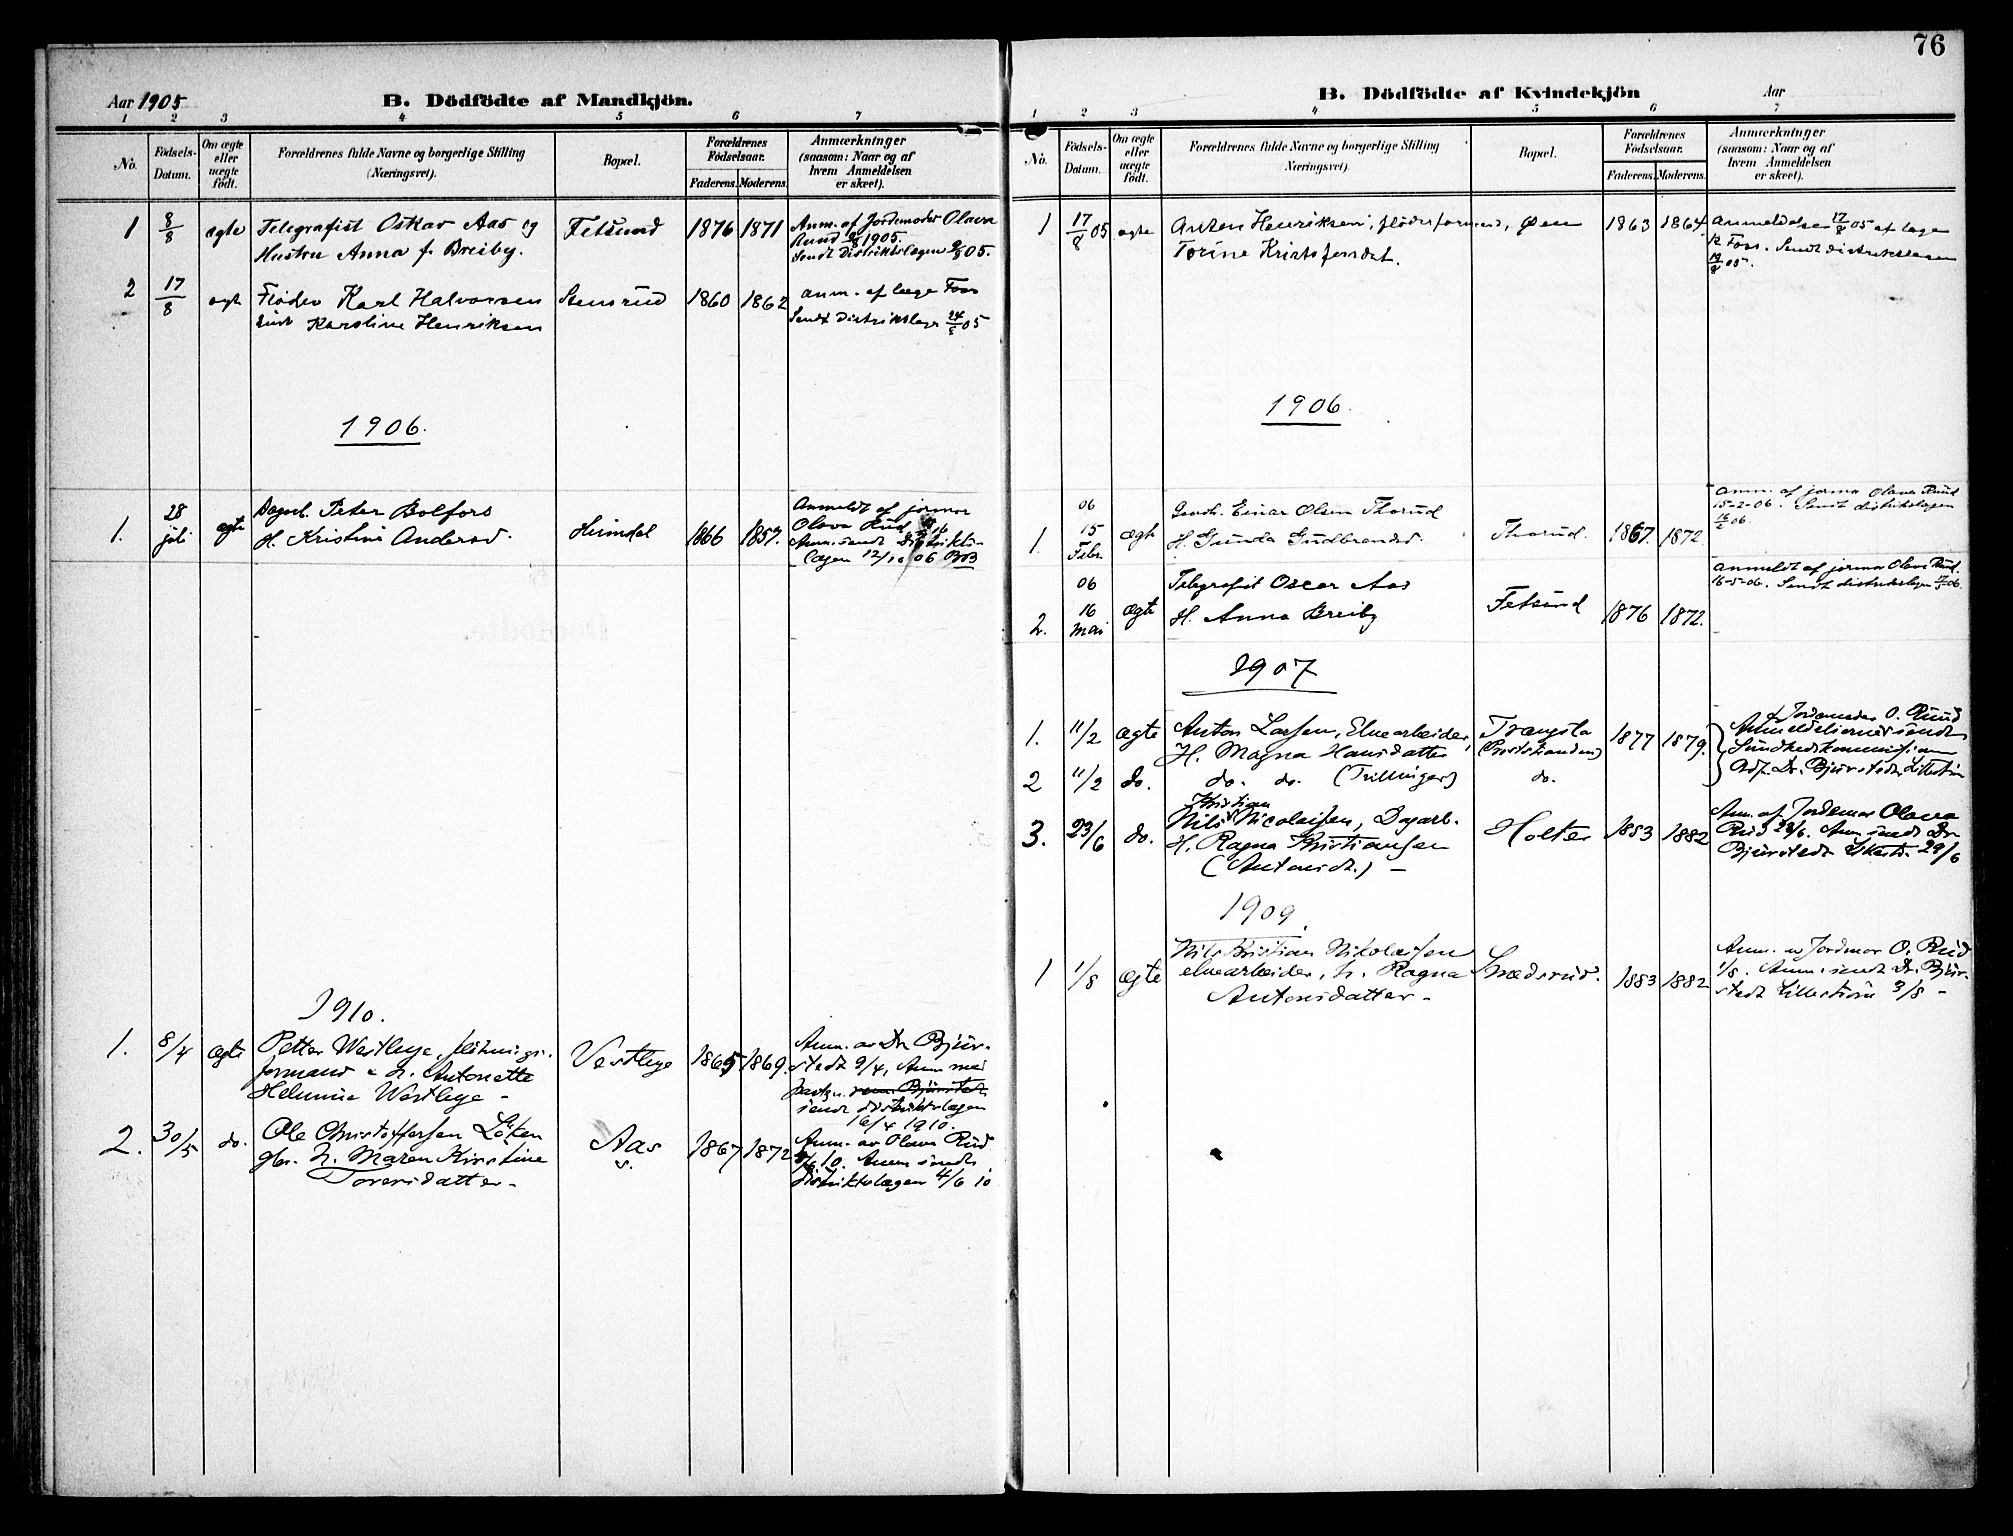 76
Aar 1905
B. Dödfödte af Mandkjön.
1 2 3 4 5 6 7
No.
Födsels-
Datum.
Om ægte
eller
uægte
födt.
Forældrenes fulde Navne og borgerlige Stilling
(Næringsvei).
Bopæl.
Forældrenes
Födselsaar.
Faderens. Moderens.
Anmærkninger
(saasom: Naar og af
hvem Anmeldelsen
er skeet).
1 8/8 ægte Telegrafist Oskar Aas og Fetsund 1876 1871 Anm. af Jordemoder Olava
Hustru Anna f. Breiby. Ruud 9/8 1905.
Sendt Distriktslægen 9/8 05.
2 17/8 ægt Fløder Karl Halvorsen Stensrud 1860 1862 anm. af læge Foss
Karoline Henriksen Sendt distriktslæge 24/8 05
1906.
1. 28 juli ægte Dagarb. Peter Bolfors Heimdal 1866 1857. Anmeldt af jormor
H. Kristine Andersd. Olava Rud
Anm. sendt Distrikts-
lægen 12/10 06
1910.
1. 8/4 ægte Petter Westlye, flötnings- Vestlye 1865 1869. Anm. av Dr. Bjür-
formand & h. Antonette stedt 9/4, Anm med
Helmine Westlye - sendt distriktslægen
16/4 1910.
2. 30/5 do. Ole Christoffersen Löken Aas 1867 1872 Anm. av Olava Rud
gbr. h. Maren Kirstine 10. Anm sendt
Torersdatter - distriktslægen 4/6 10
B. Dödfödte af Kvindekjön
Aar
1 2 3 4 5 6 7
No.
Födsels-
Datum.
Om ægte
eller
uægte
födt.
Forældrenes fulde Navne og borgerlige Stilling
(Næringsvei).
Bopæl.
Forældrenes
Födselsaar.
Faderens. Moderens.
Anmærkninger
(saasom: Naar og af
hvem Anmeldelsen
er skeet).
1 17/8 05 ægte Anton Henriksen, fløderformand, Øien 1863 1864 Anmeldelse 17/8 05 af læge
Torine Kristoffersdat. Foss. Sendt distriktslægen
19/8 05.
1906.
1. 06 15 Febr. ægte Gaardb. Einar Olsen Thorud Thorud. 1867. 1872. anm. af jormo Olava Ruud
H. Gunda Gudbrandsd. 15-2-06. Sendt distriktslægen
16/2 06.
2. 06 16 Mai Ægte Telegrafist Oscar Aas Fetsund 1876 1872. anmeldt af jormo Olava Rud.
H. Anna Breiby 16-5-06. Sendt distriktslægen 06.
1907
1. 11/2 ægte Anton Larsen, Elvearbeider, Trangsta 1877 1879. Jordemoder O. Ruud
H. Magna Hansdatter
2 11/2 do. do. do. (Tvillinger) do. Dr. Bjürstedt, Lilleström
3. 23/6 do. Nils Kristian Nicolaisen, Dagarb. Holter 1883 1882 Anm. af Jordemor Olava
H. Ragna Kristiansen Rud 28/6. Anm. sendt Dr.
(Antonsdt.) - Bjürstedt 29/6
1909.
1 1/8 ægte Nils Kristian Nikolaisen Snedsrud. 1883 1882 Anm. av Jordmor O. Rud
elvearbeider, h. Ragna 1/8. Anm. sendt Dr. Bjür-
Antonsdatter - stedt Lilleström 3/8 -